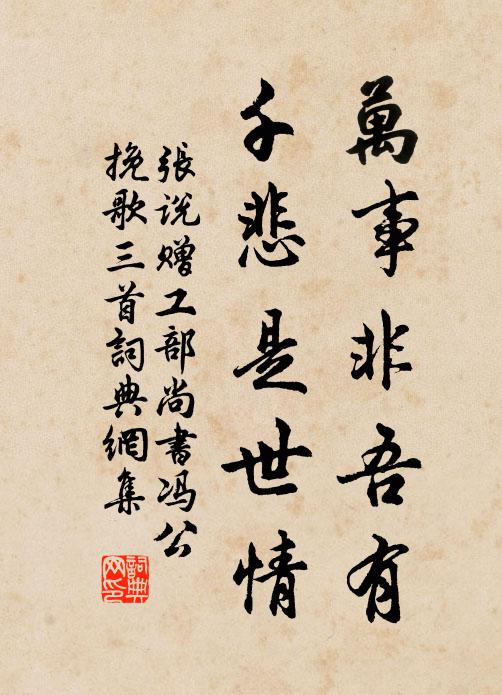 萬事非吾有
千悲是世情
張説贈工部尚書馮公
挽歌三首詞典網集
詞典网印